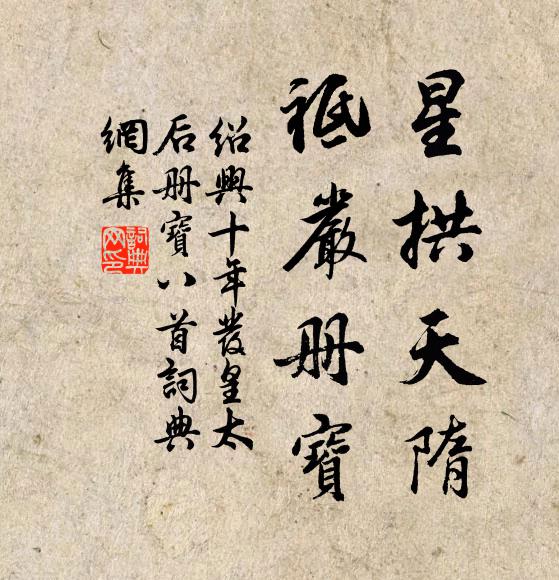 星拱天隋
祗嚴册寶
紹興十年發皇太
后册寶八首詞典
網集
詞典
网印